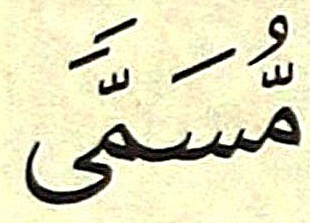 مُّسَمًّى